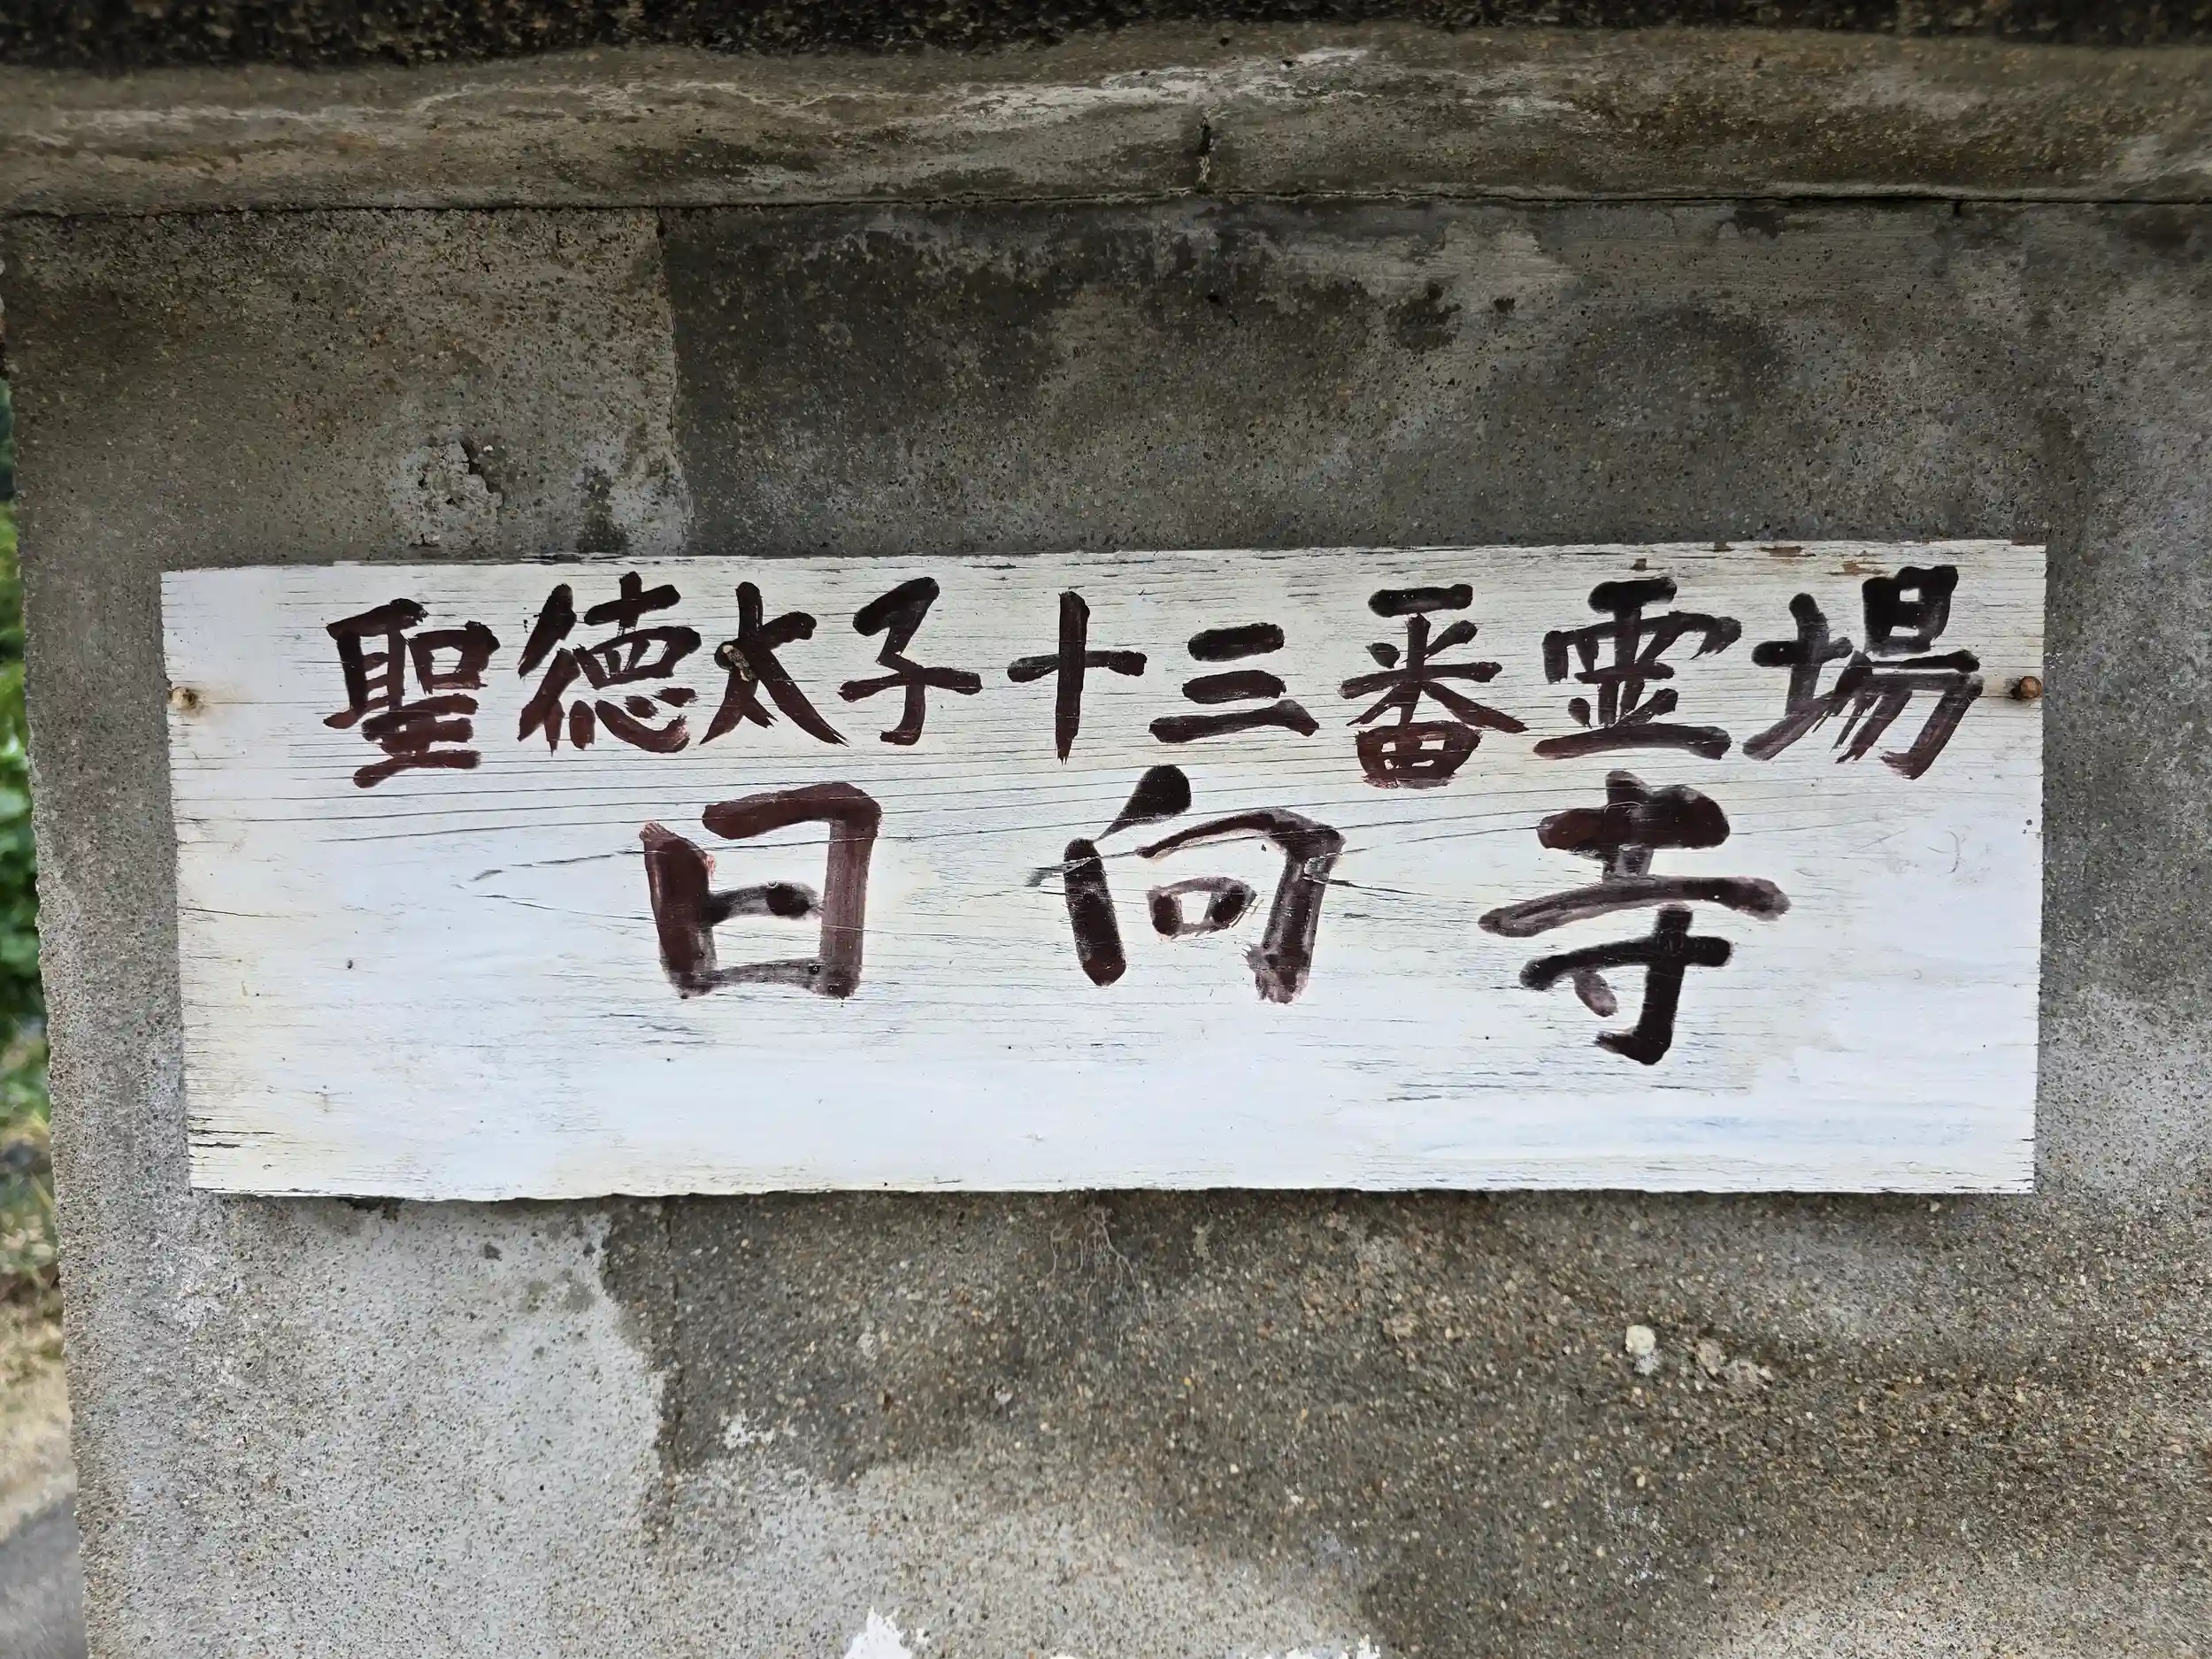 聖徳太子十三番霊場
日向寺